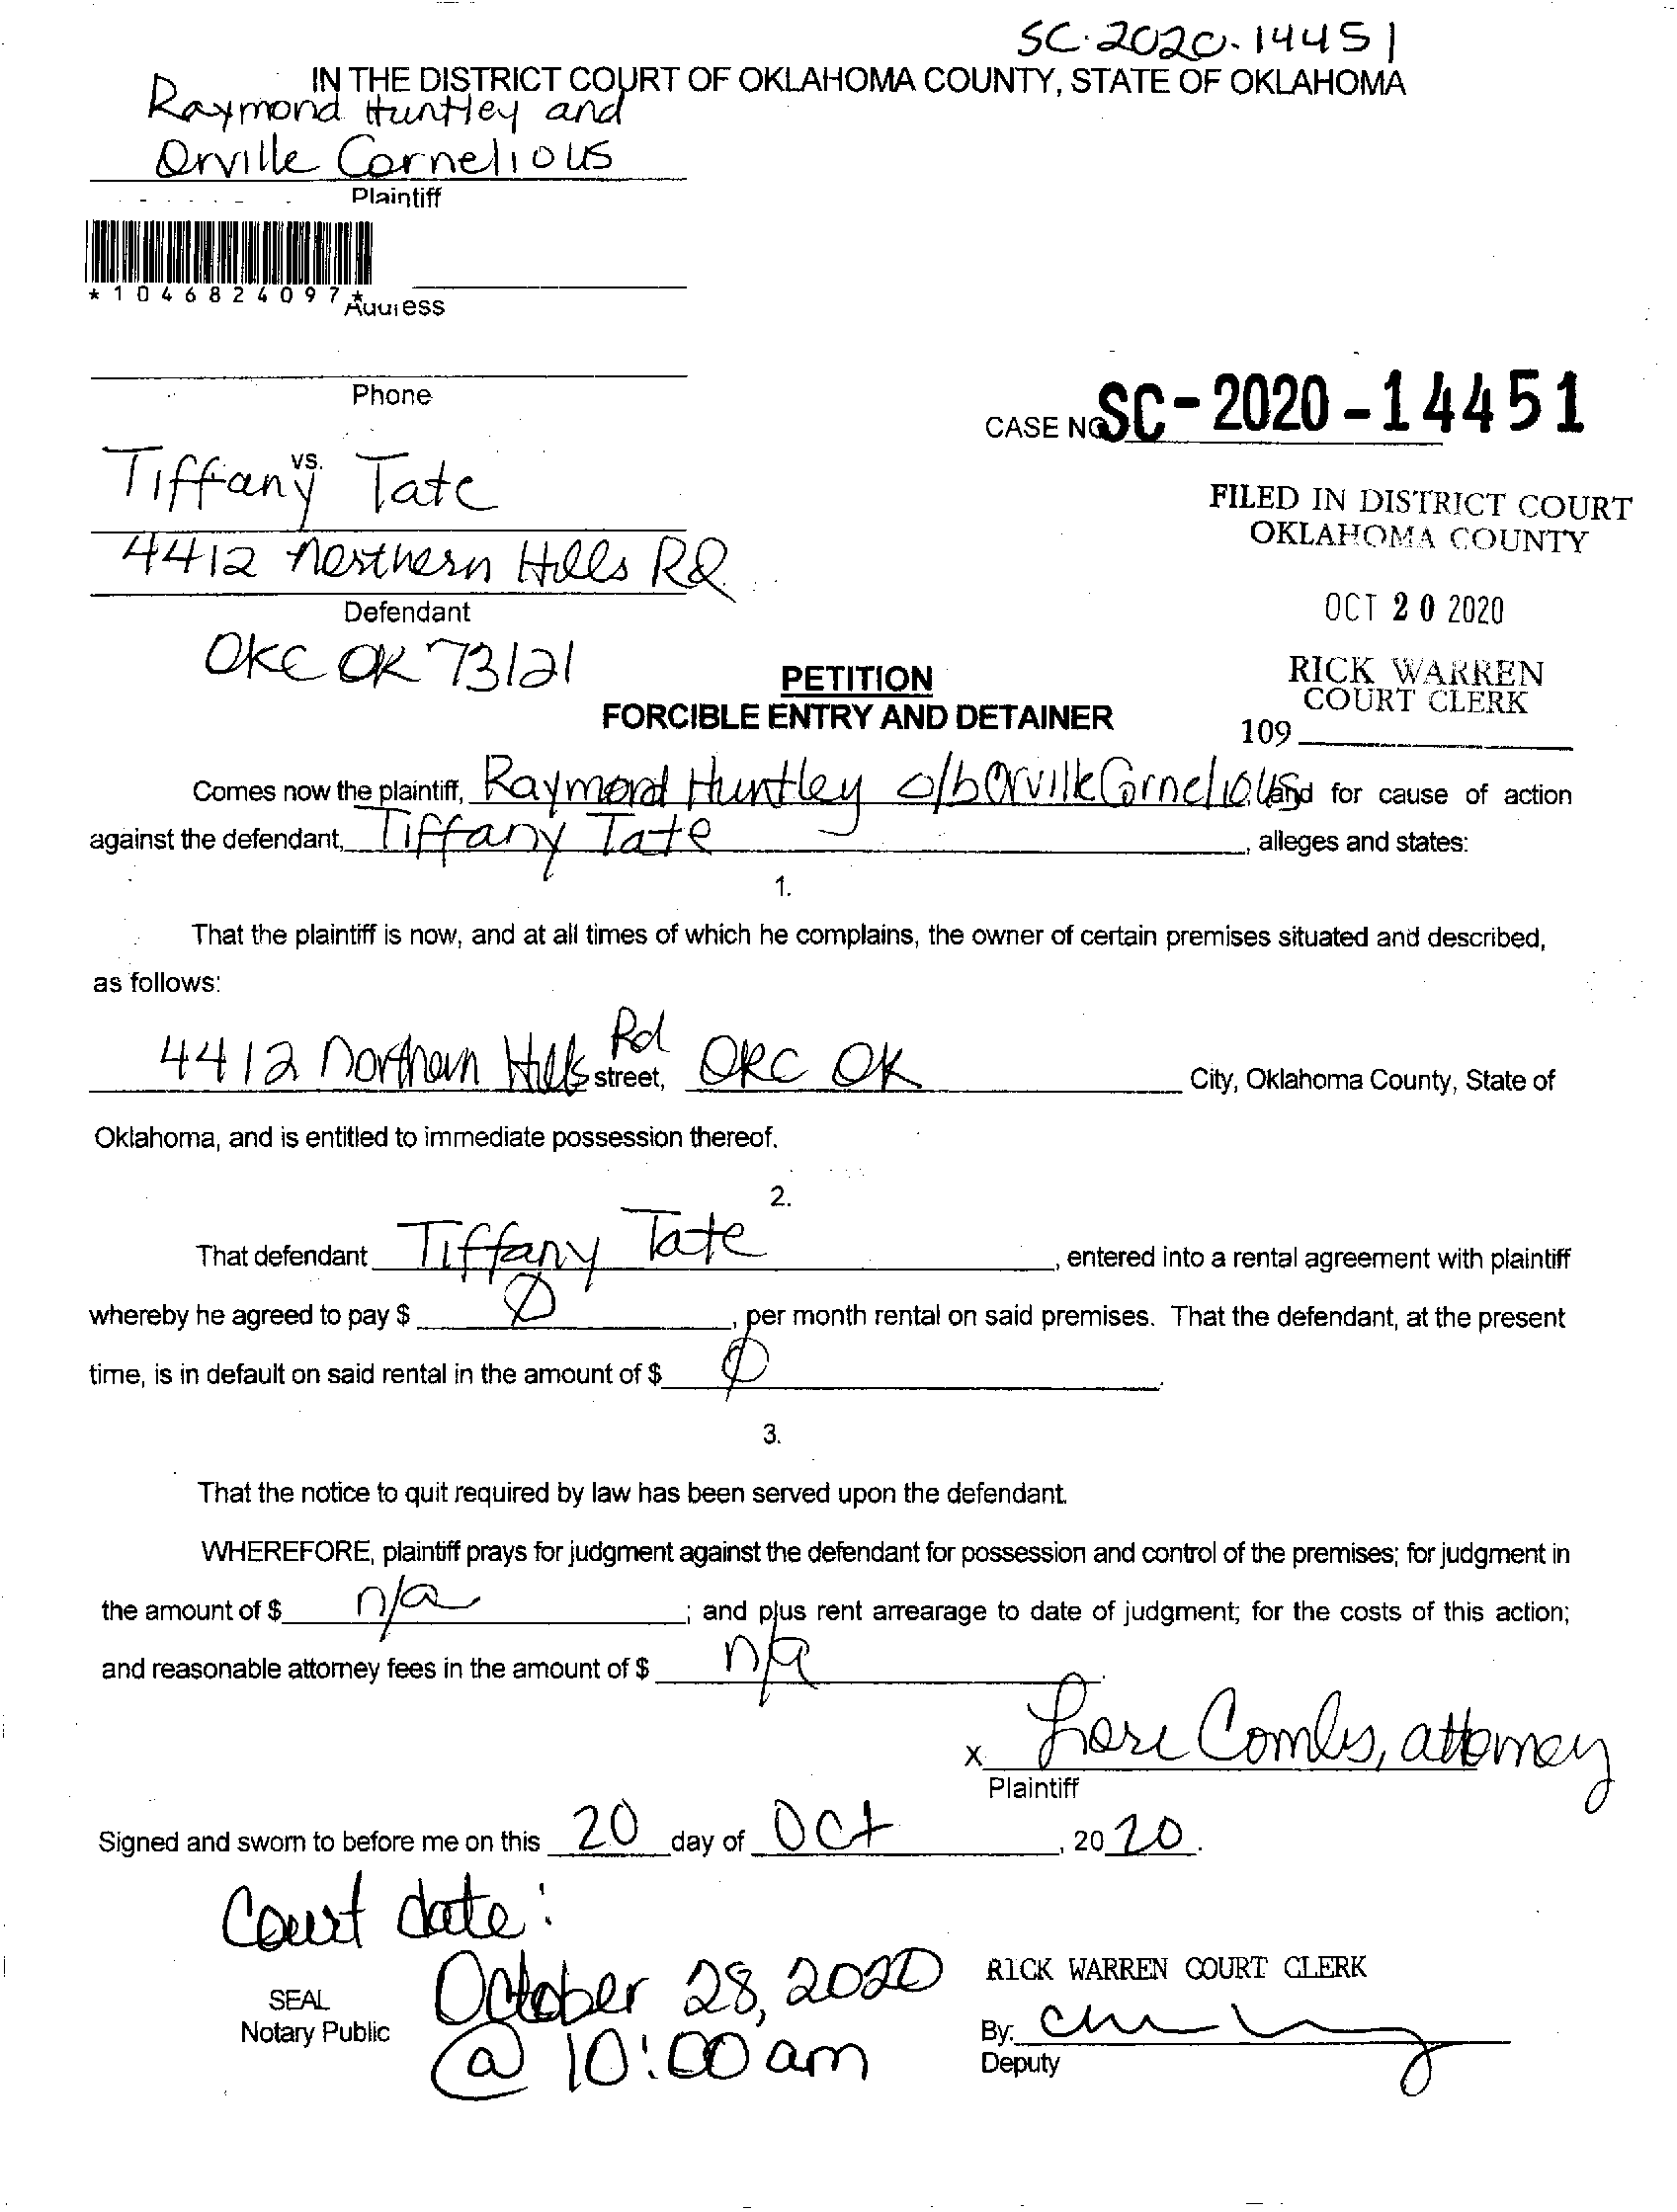 SC-2020-14451
IN THE DISTRICT COURT OF OKLAHOMA COUNTY, STATE OF OKLAHOMA
Raymond Huntley and
Orville Cornelious
Plaintiff
*1046824097*
Address
Phone
CASE NO SC-2020-14451
vs.
Tiffany Tate
FILED IN DISTRICT COURT
OKLAHOMA COUNTY
4412 Northern Hills Rd.
Defendant
OCT 20 2020
OKC OK 73121
RICK WARREN
COURT CLERK
PETITION
FORCIBLE ENTRY AND DETAINER
109
Comes now the plaintiff, Raymond Huntley o/b Orville Cornelious and for cause of action
against the defendant, Tiffany Tate, alleges and states:
1.
That the plaintiff is now, and at all times of which he complains, the owner of certain premises situated and described,
as follows:
4412 Northern Hills Rd street, OKC OK City, Oklahoma County, State of
Oklahoma, and is entitled to immediate possession thereof.
2.
That defendant Tiffany Tate, entered into a rental agreement with plaintiff
whereby he agreed to pay $ Ø, per month rental on said premises. That the defendant, at the present
time, is in default on said rental in the amount of $ Ø.
3.
That the notice to quit required by law has been served upon the defendant.
WHEREFORE, plaintiff prays for judgment against the defendant for possession and control of the premises; for judgment in
the amount of $ n/a; and plus rent arrearage to date of judgment; for the costs of this action;
and reasonable attorney fees in the amount of $ n/a.
x Lori Combs, attorney
Plaintiff
Signed and sworn to before me on this 20 day of Oct, 2020.
Court date:
October 28, 2020
@ 10:00 am
SEAL
Notary Public
RICK WARREN COURT CLERK
By:
Deputy